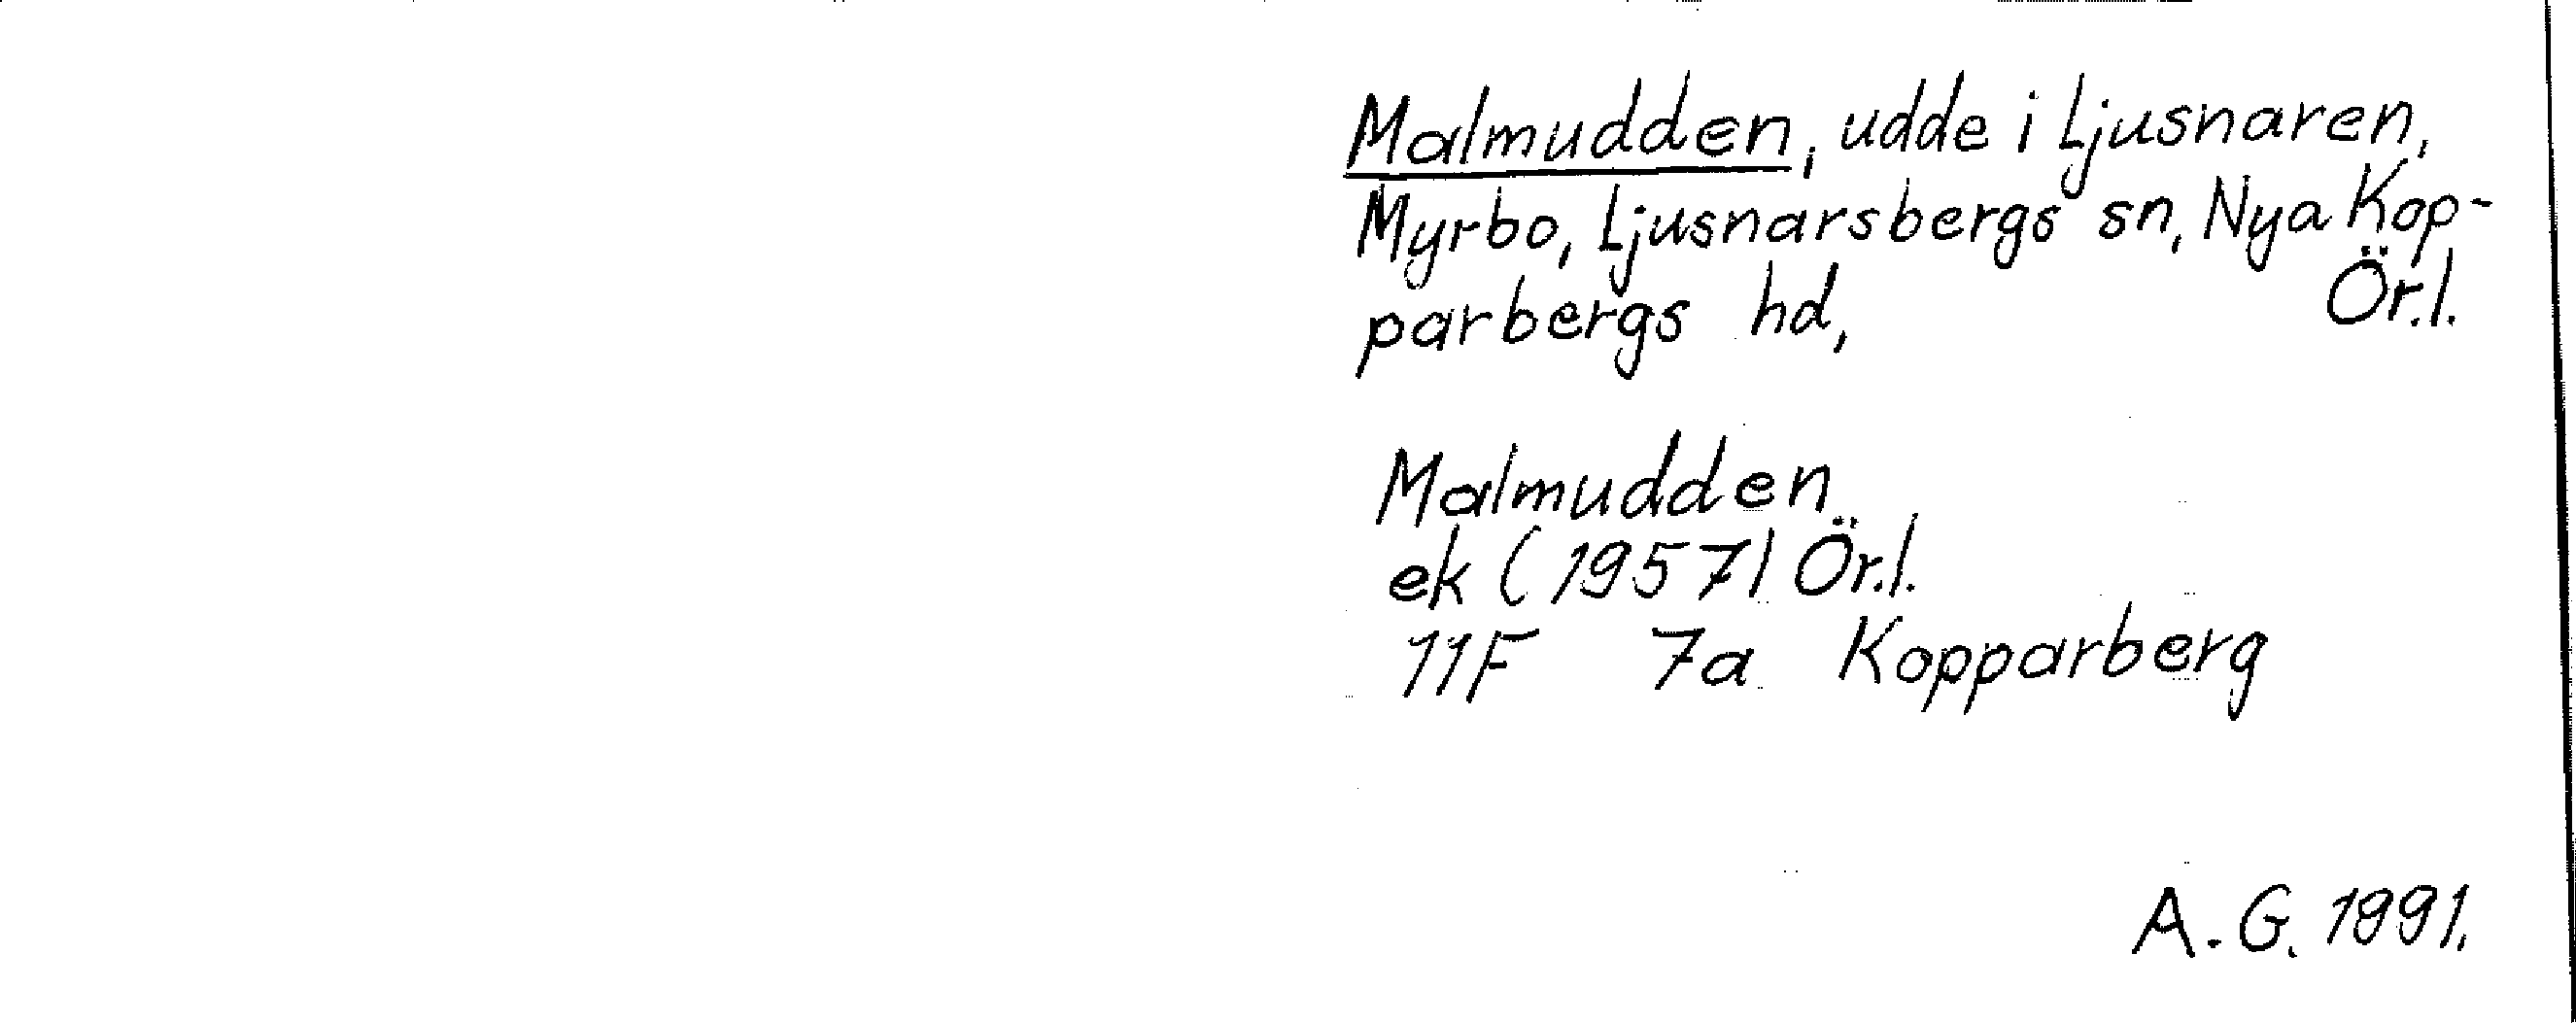 Malmudden, udde i Ljusnaren,
Myrbo, Ljusnarsbergs sn, Nya Kop-
parbergs hd, Ör.l.
Malmudden
ek (1957) Ör.l.
11F 7a Kopparberg
A.G. 1991.